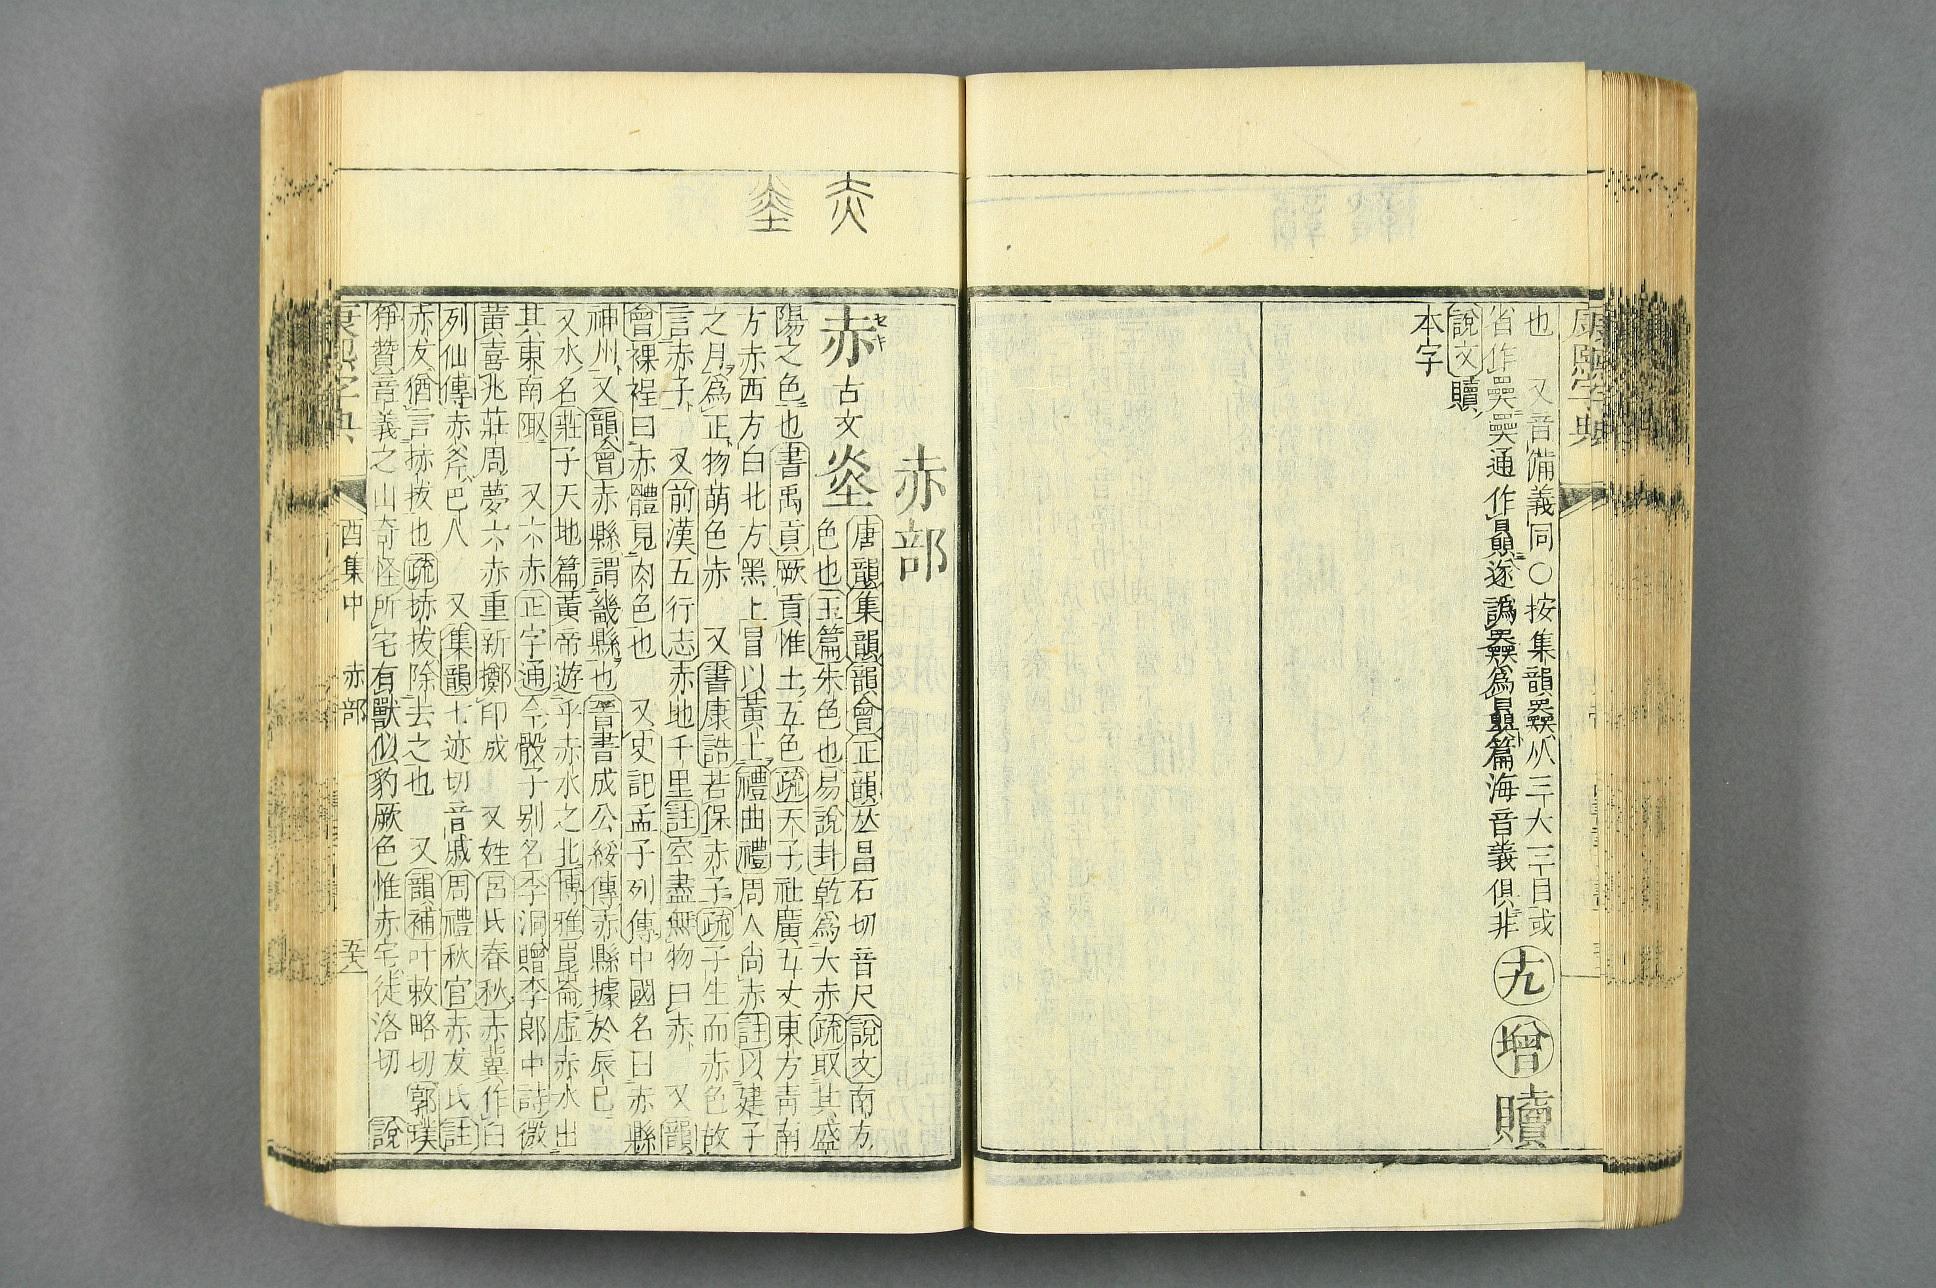 康熙字典
也 又音備義同○按集韻㒡从三大三目或
省作𡚤𡘽通作贔遂譌奰為贔篇海音義俱非
九
增
贖
說文贖
本字
赤部
赤
セキ
古文
烾
唐韻集韻韻會正韻𠀤昌石切音尺說文南方
色也玉篇朱色也易說卦乾為大赤疏取其盛
陽之色也書禹貢厥貢惟土五色疏天子社廣五丈東方青南
方赤西方白北方黑上冒以黃土禮曲禮周人尚赤註以建子
之月為正物萌色赤 又書康誥若保赤子疏子生而赤色故
言赤子 又前漢五行志赤地千里註空盡無物曰赤 又韻
會裸裎曰赤體見肉色也 又史記孟子列傳中國名曰赤縣
神州又韻會赤縣謂畿縣也晉書成公綏傳赤縣據於辰巳
又水名莊子天地篇黃帝遊乎赤水之北博雅崑崙虛赤水出
其東南陬 又六赤正字通今骰子別名李洞贈李郎中詩微
黃喜兆莊周夢六赤重新擲印成 又姓呂氏春秋赤冀作臼
列仙傳赤斧巴人 又集韻七迹切音戚周禮秋官赤犮氏註
赤犮猶言捇拔也疏捇拔除去之也 又韻補叶敕略切郭璞
猙贊章義之山奇怪所宅有獸似豹厥色惟赤宅徒洛切 說
康熙字典
酉集中
赤部
五六